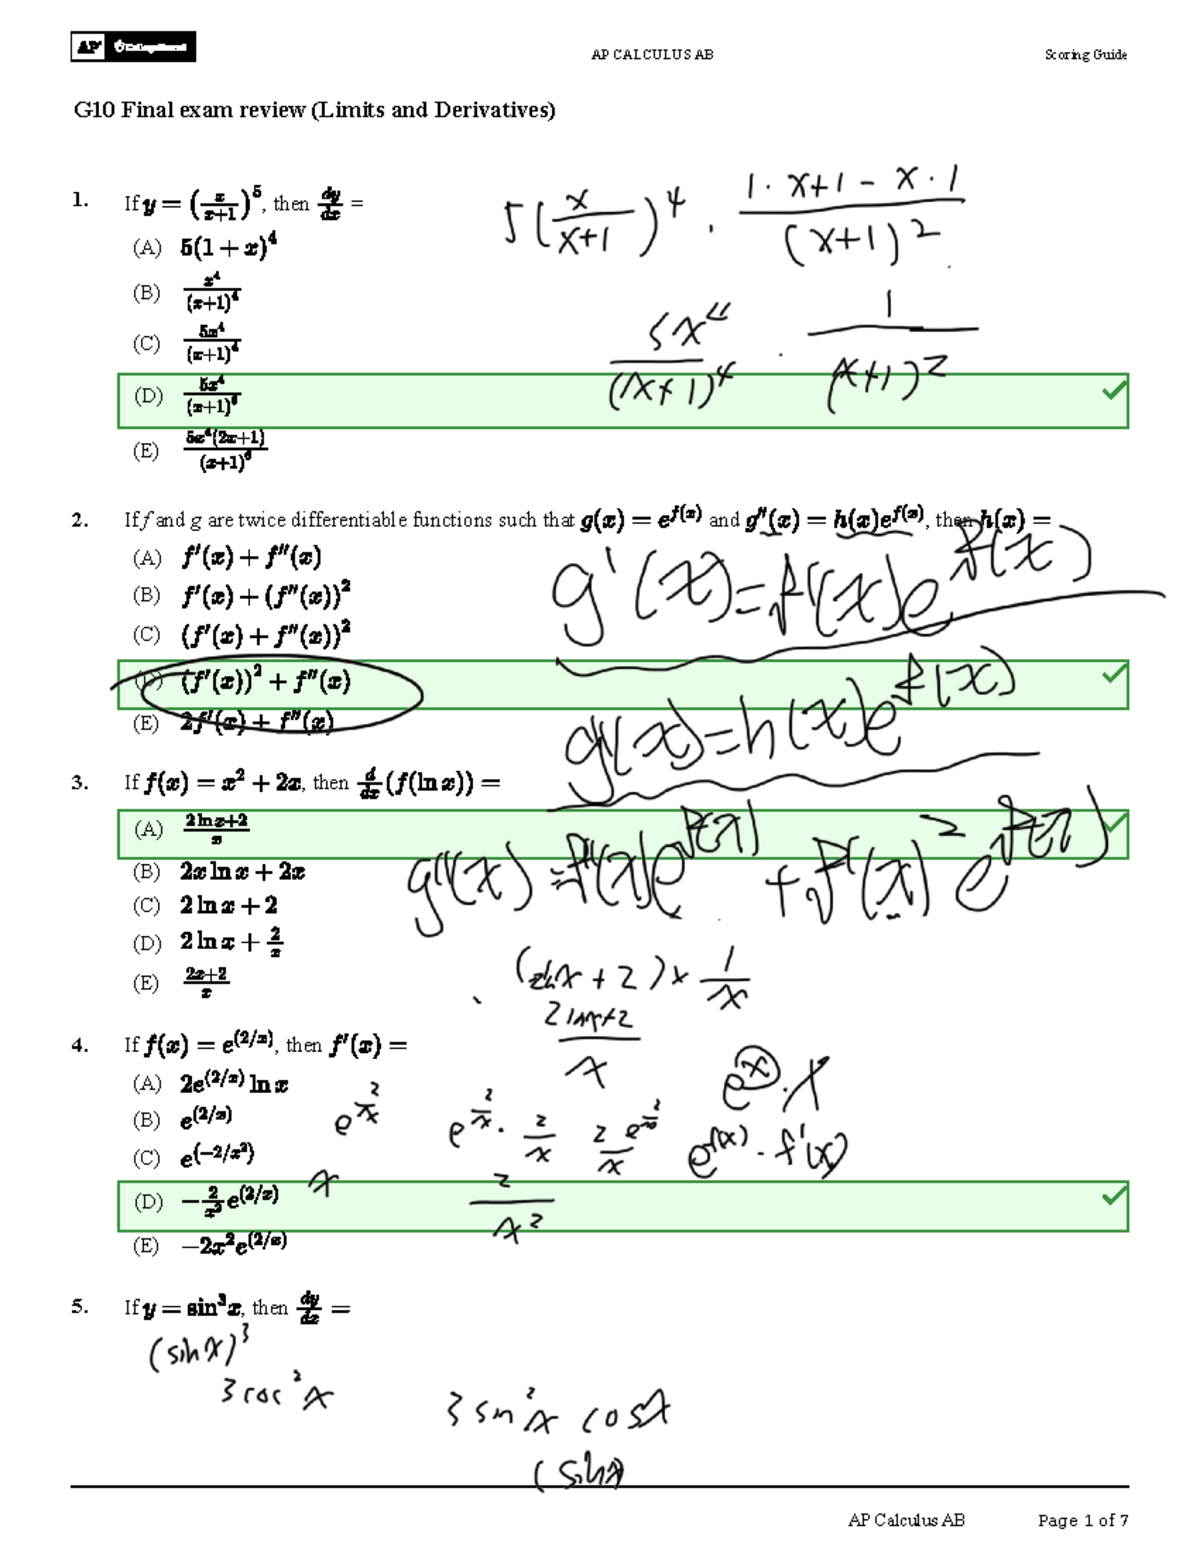 AP CollegeBoard
AP CALCULUS AB
Scoring Guide
G10 Final exam review (Limits and Derivatives)
1. If y = (x/(x+1))^5, then dy/dx =
5(x/(x+1))^4 · (1·x+1 − x·1)/(x+1)^2
(A) 5(1 + x)^4
(B) x^4/(x+1)^4
5x^4/(x+1)^4 · 1/(x+1)^2
(C) 5x^4/(x+1)^4
(D) 5x^4/(x+1)^6
(E) 5x^4(2x+1)/(x+1)^6
2. If f and g are twice differentiable functions such that g(x) = e^f(x) and g″(x) = h(x)e^f(x), then h(x) =
(A) f′(x) + f″(x)
g'(x)=f'(x)e^f(x)
(B) f′(x) + (f″(x))^2
(C) (f′(x) + f″(x))^2
(D) (f′(x))^2 + f″(x)
g''(x)=h(x)e^f(x)
(E) 2f′(x) + f″(x)
3. If f(x) = x^2 + 2x, then d/dx (f(ln x)) =
(A) (2 ln x+2)/x
g''(x)=f''(x)e^f(x) + f'(x)^2 e^f(x)
(B) 2x ln x + 2x
(C) 2 ln x + 2
(D) 2 ln x + 2/x
(E) (2x+2)/x
+ 2) × 1/x
(2lnx+2)/x
4. If f(x) = e^(2/x), then f′(x) =
(A) 2e^(2/x) ln x
e^x · x
(B) e^(2/x)
e^(2/x)
e^(2/x) · 2/x
2/x
e^f(x) · f'(x)
(C) e^(−2/x^2)
x
2/x^2
(D) −2/x^2 e^(2/x)
(E) −2x^2e^(2/x)
5. If y = sin^3 x, then dy/dx =
(sinx)^3
3 cos^2 x
3 sin^2 x cosx
(sinx)
AP Calculus AB
Page 1 of 7